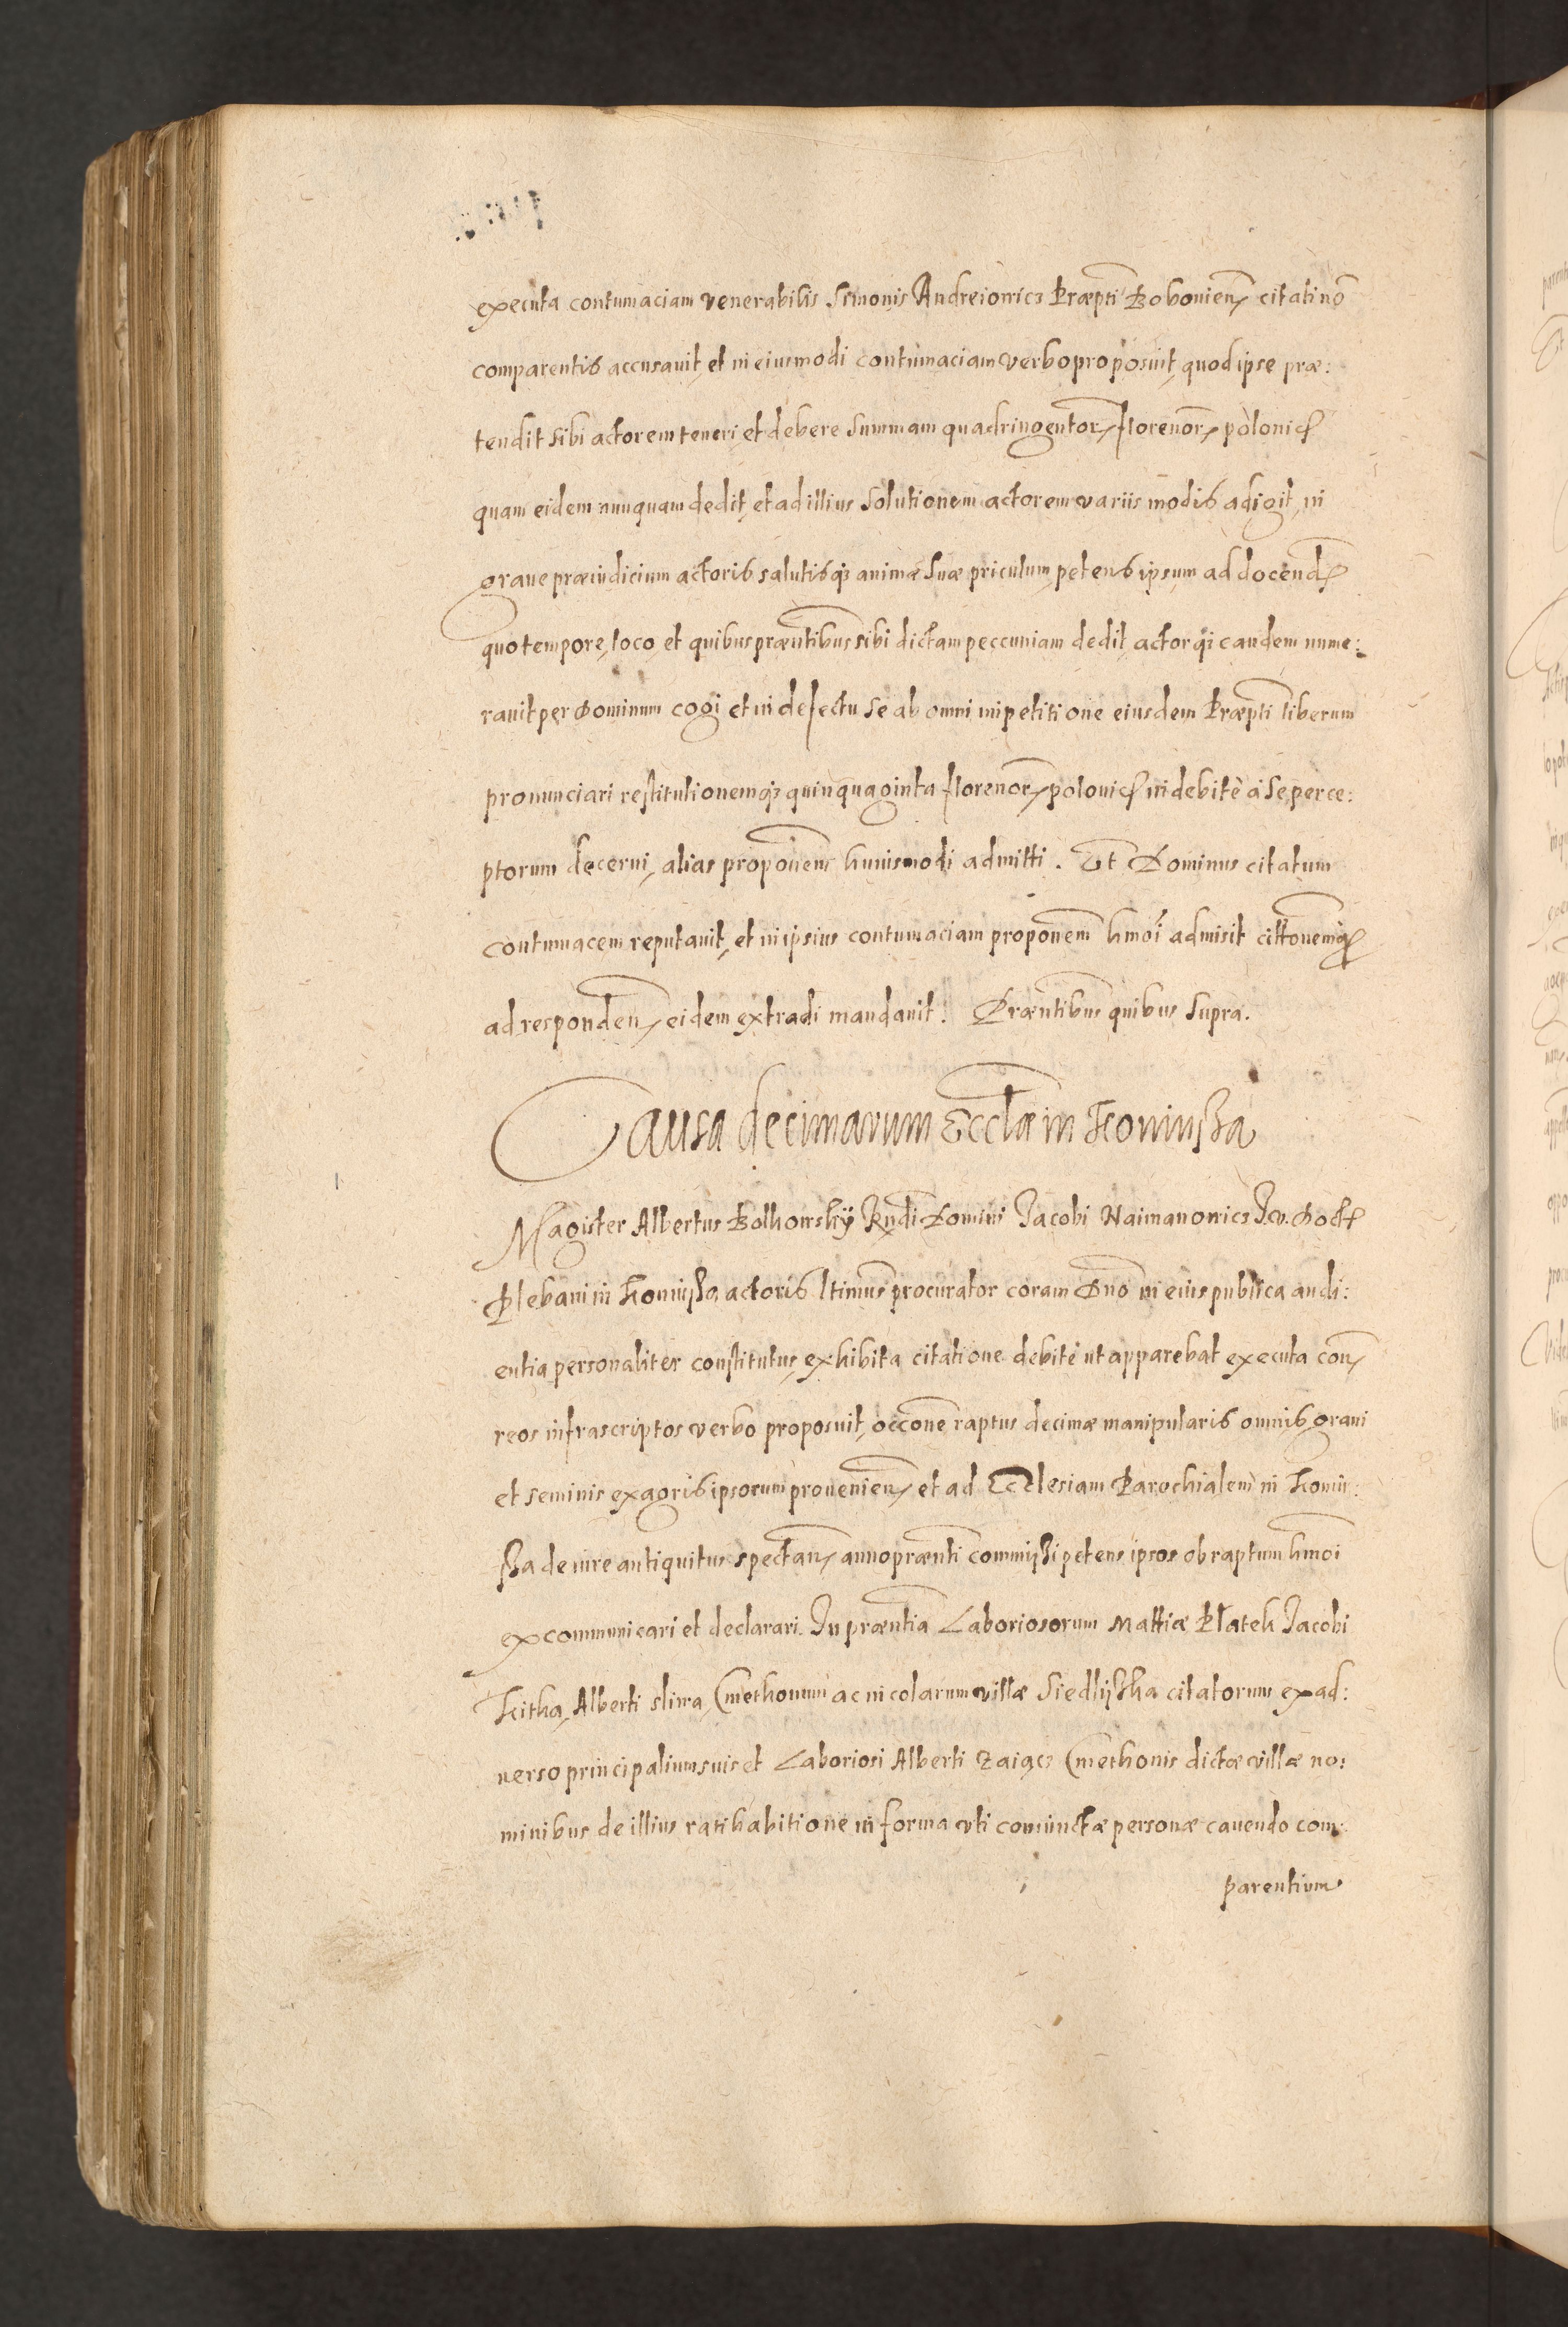 executa contumaciam venerabilis Simonis Andreiowicz Præpti Boboniens citati nō
comparentis accusauit, et in eiusmodi contumaciam verbo proposuit, quod ipse præ:
tendit sibi actorem teneri, et debere summam quadringentor florenor polonic
quam eidem nunquam dedit, et ad illius solutionem actorem variis modis adigit, in
graue præiudicium actoris salutisq animæ suæ priculum, petens ipsum ad docend
quo tempore, loco, et quibus præntibus sibi dictam peccuniam dedit, actor qi eandem nume:
rauit per Dominum cogi et in defectu se ab omni impetitione eiusdem Præpti liberum
pronunciari restitutionemq quinquaginta florenor polonic indebitè à se perce:
ptorum decerni, alias proponem huiusmodi admitti. Et Dominus citatum
contumacem reputauit, et in ipsius contumaciam proponem hmoi admisit cittonemq
ad responden eidem extradi mandauit. Præntibus quibus supra.
Causa decimarum Eccłæ in Koniusza
Magister Albertus Bolhowsky Rndi Domini Jacobi Naimanowicz J. v. Doct
Plebani in Koniusza actoris ltimus procurator coram Dno in eius publica audi:
entia personaliter constitutus, exhibita citatione debitè ut apparebat executa con
reos infrascriptos verbo proposuit, occōne raptus decimæ manipularis omnis grani
et seminis ex agris ipsorum prouenien et ad Ecclesiam Parochialem in Koniu:
sza de iure antiquitus spectan anno prænti commissi petens ipsos ob raptum hmoi
excommunicari et declarari. In præntia Laboriosorum Mattiæ Płatek Jacobi
Kitka, Alberti sliwa, Cmethonum ac incolarum villæ Siedliska citatorum ex ad:
uerso principalium suis et Laboriosi Alberti Zaiącz Cmethonis dictæ villæ no:
minibus de illius ratihabitione in forma vti coniunctæ personæ cauendo com:
parentium